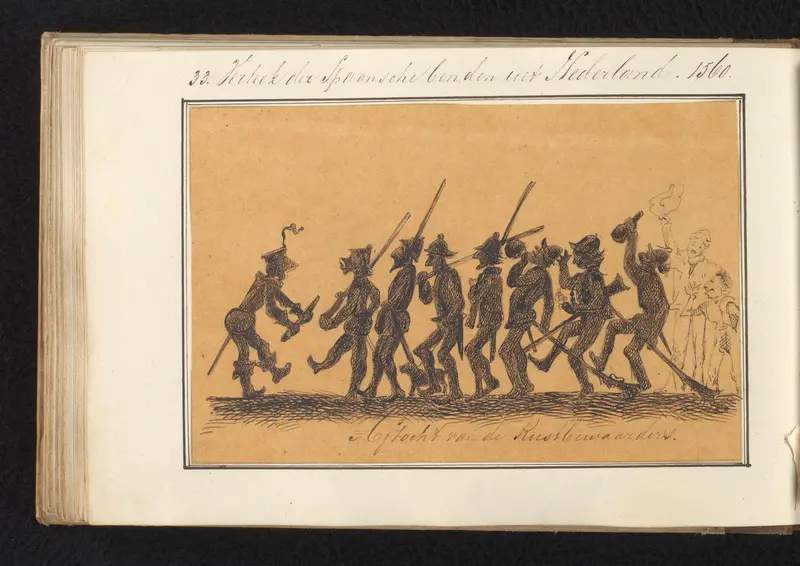 33. Vertrek der Spaansche benden uit Nederland. 1560.
Aftocht van de Rustbewaarders.